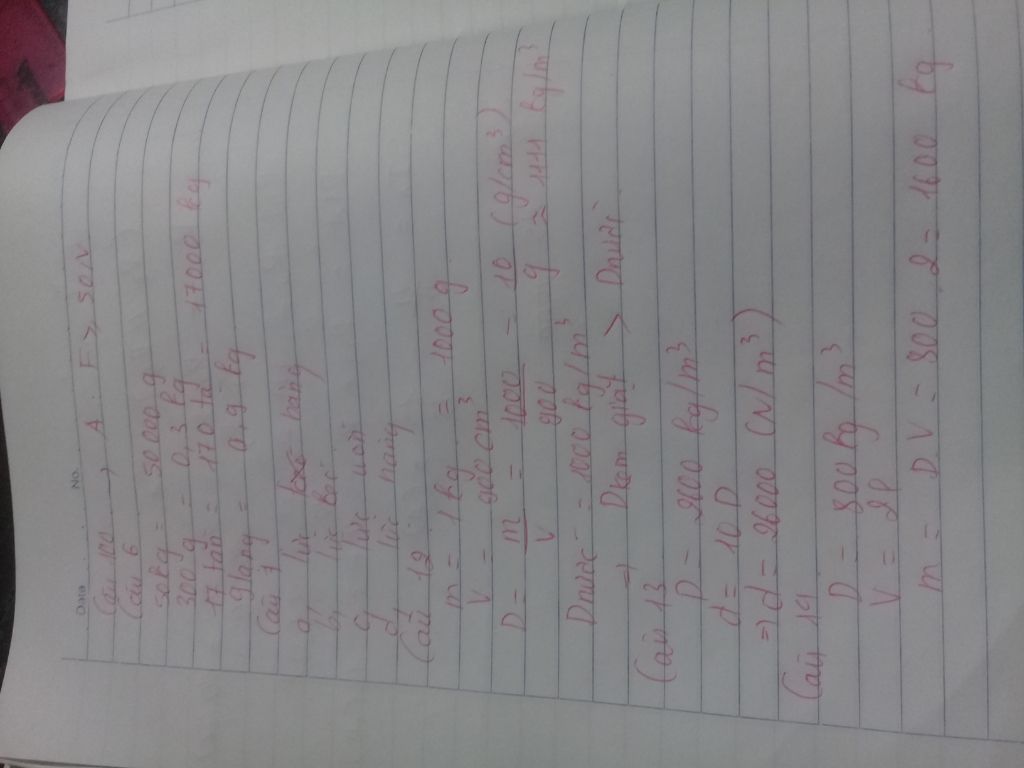 Date No.
Câu 100 → A. F > 50N
Câu 6
50kg = 50 000 g
300 g = 0,3 kg
17 tấn = 170 tạ = 17000 kg
9 lạng = 0,9 kg
Câu 7
a lực nâng
b, lực kéo
c lực uốn
d lực nâng
Câu 12
m = 1 kg = 1000 g
V = 900 cm³
D = m/V = 1000/900 = 10/9 (g/cm³) ≈ 1111 kg/m³
Dnước = 1000 kg/m³
⇒ Dkem giặt > Dnước
Câu 13
D = 2600 kg/m³
d = 10 D
⇒ d = 26000 (N/m³)
Câu 14
D = 800 kg/m³
V = 2l
m = D.V = 800 2 = 1600 kg